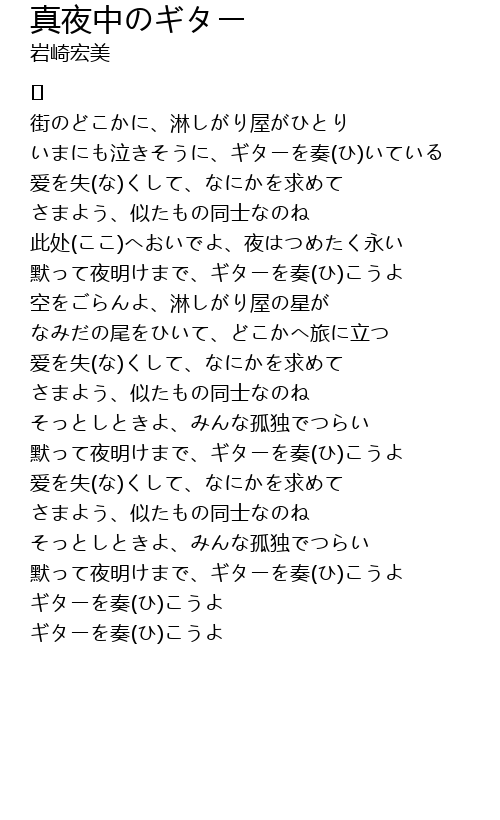 真夜中のギター
岩崎宏美
街のどこかに、淋しがり屋がひとり
いまにも泣きそうに、ギターを奏(ひ)いている
爱を失(な)くして、なにかを求めて
さまよう、似たもの同士なのね
此处(ここ)へおいでよ、夜はつめたく永い
默って夜明けまで、ギターを奏(ひ)こうよ
空をごらんよ、淋しがり屋の星が
なみだの尾をひいて、どこかへ旅に立つ
爱を失(な)くして、なにかを求めて
さまよう、似たもの同士なのね
そっとしときよ、みんな孤独でつらい
默って夜明けまで、ギターを奏(ひ)こうよ
爱を失(な)くして、なにかを求めて
さまよう、似たもの同士なのね
そっとしときよ、みんな孤独でつらい
默って夜明けまで、ギターを奏(ひ)こうよ
ギターを奏(ひ)こうよ
ギターを奏(ひ)こうよ